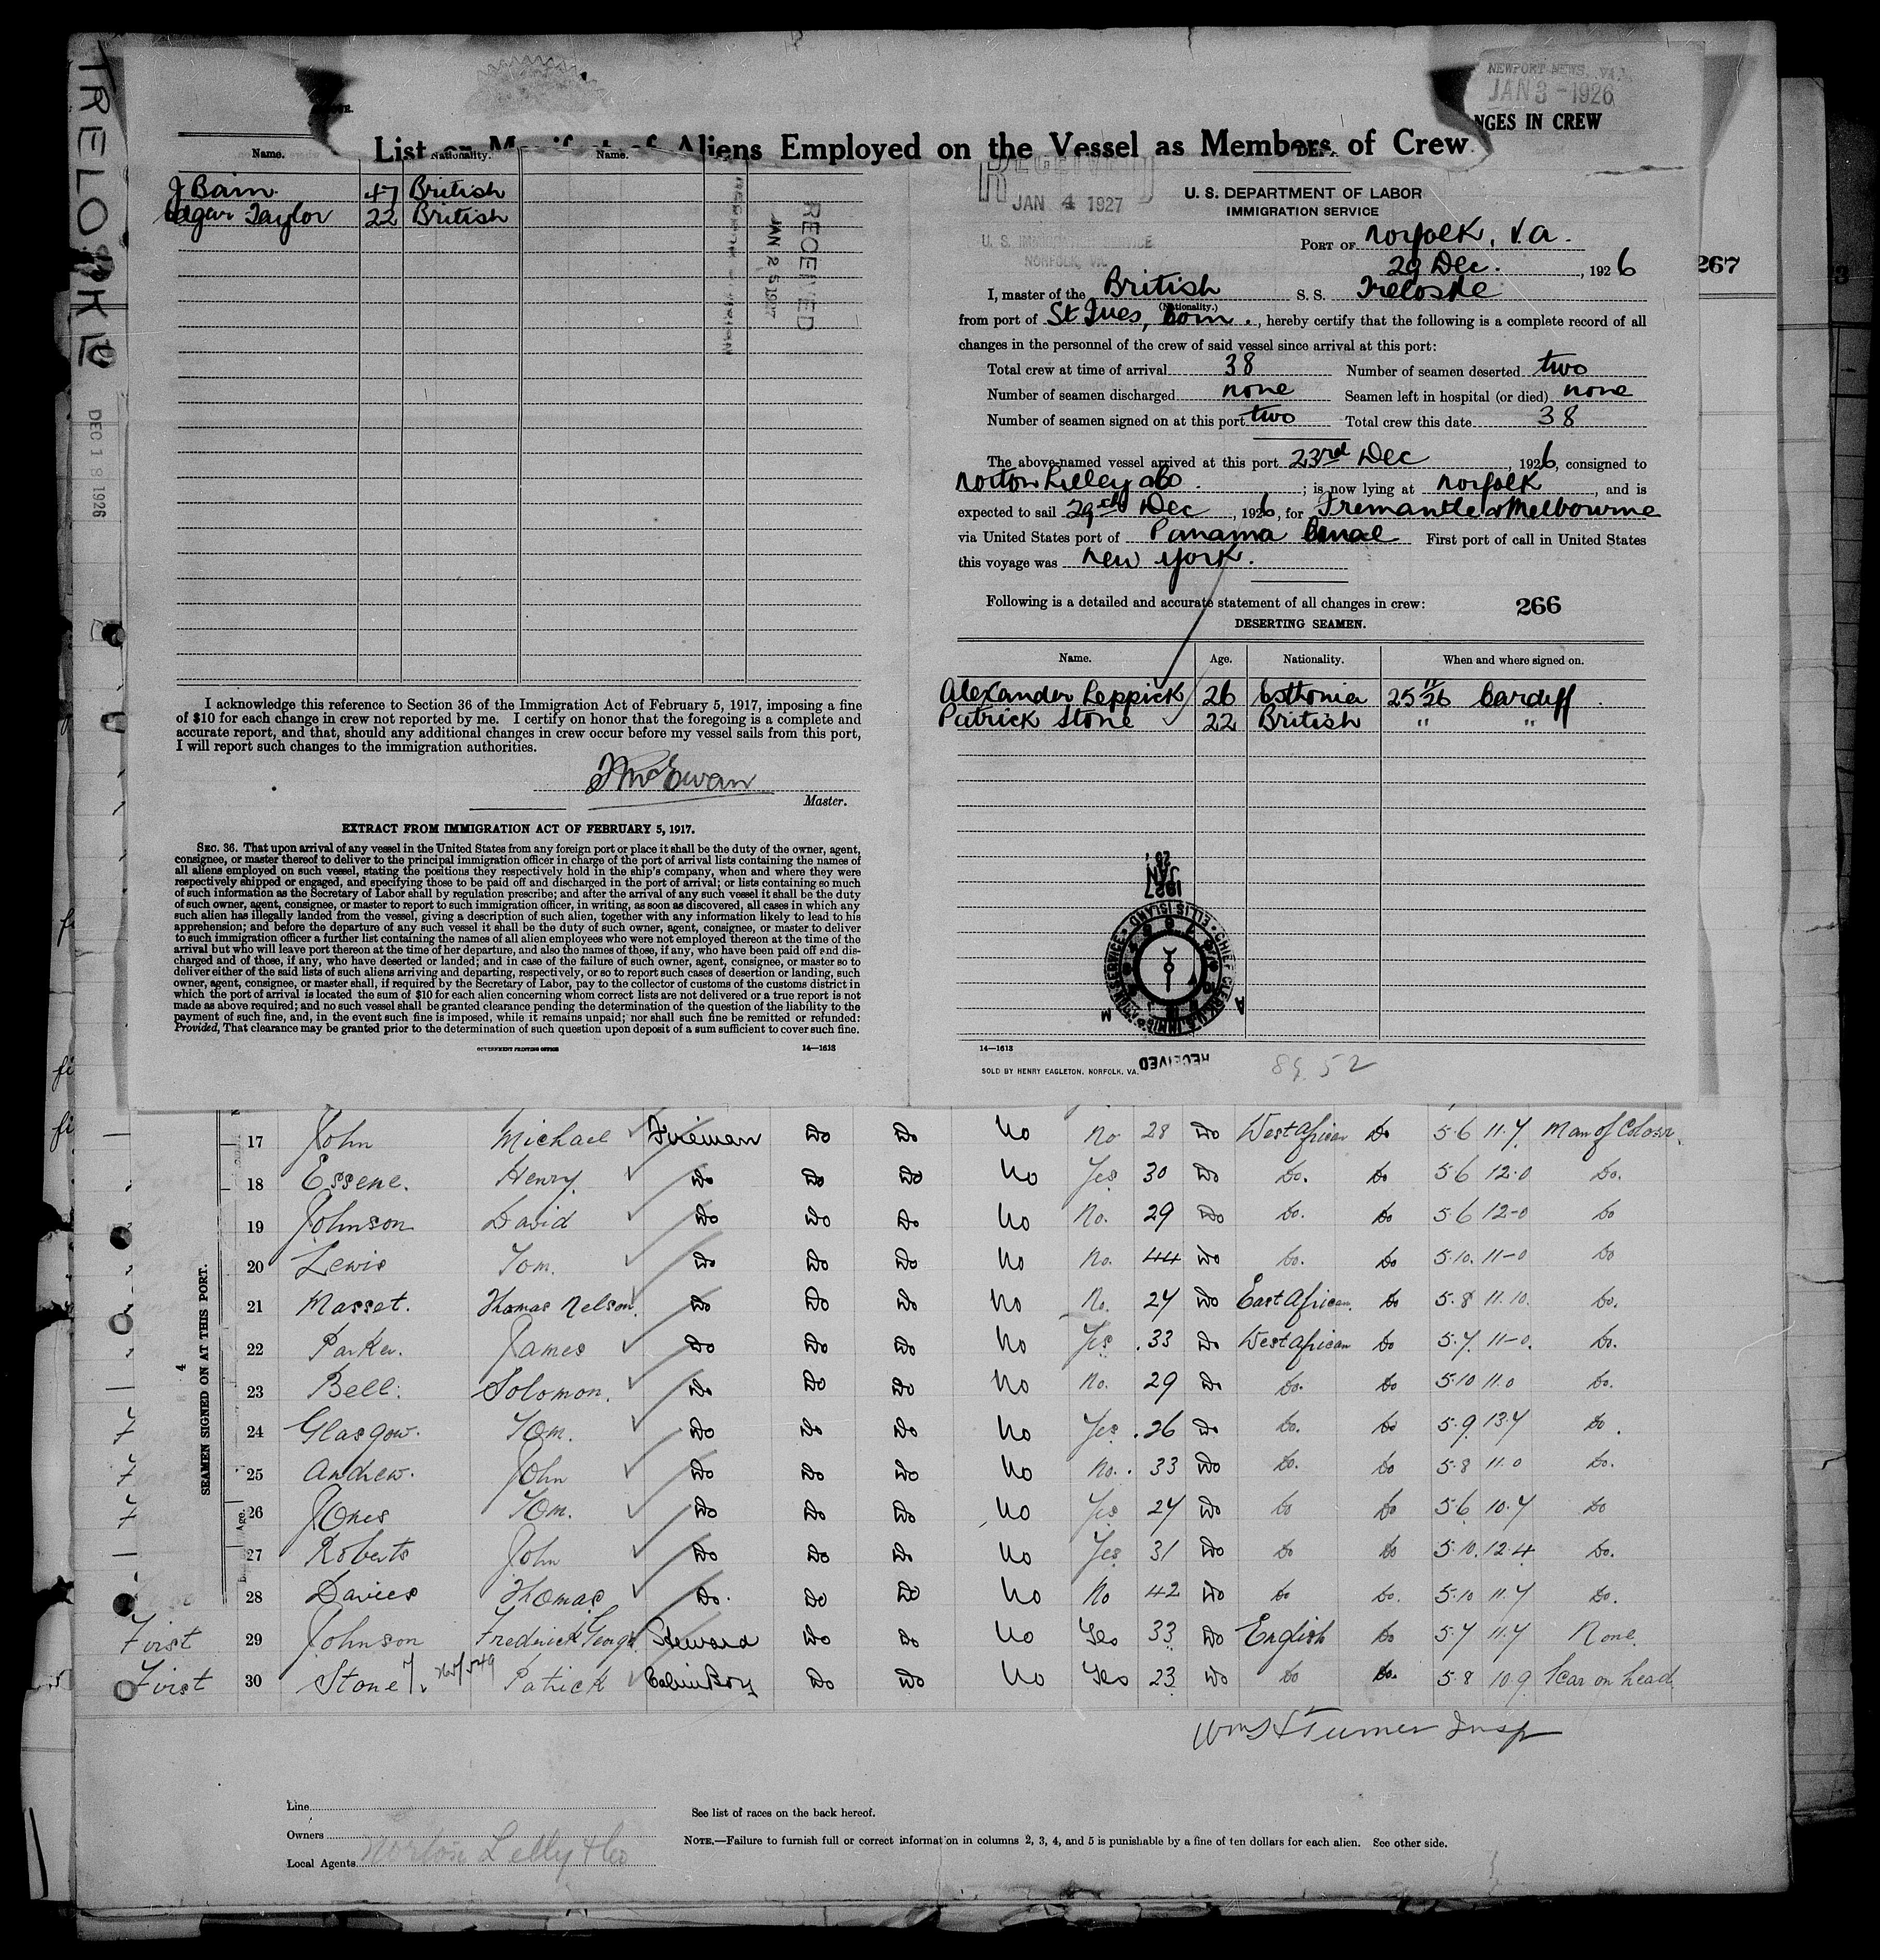 TRELOSKE
DEC 18 1926
NEWPORT NEWS, VA.
JAN 3 - 1926
NGES IN CREW
List or Manifest of Aliens Employed on the Vessel as Members of Crew
Name. Nationality. Name.
J Bain 47 British
Edgar Taylor 22 British
RECEIVED
JAN 25 1927
I acknowledge this reference to Section 36 of the Immigration Act of February 5, 1917, imposing a fine
of $10 for each change in crew not reported by me. I certify on honor that the foregoing is a complete and
accurate report, and that, should any additional changes in crew occur before my vessel sails from this port,
I will report such changes to the immigration authorities.
McEwan
Master.
EXTRACT FROM IMMIGRATION ACT OF FEBRUARY 5, 1917.
SEC. 36. That upon arrival of any vessel in the United States from any foreign port or place it shall be the duty of the owner, agent,
consignee, or master thereof to deliver to the principal immigration officer in charge of the port of arrival lists containing the names of
all aliens employed on such vessel, stating the positions they respectively hold in the ship's company, when and where they were
respectively shipped or engaged, and specifying those to be paid off and discharged in the port of arrival; or lists containing so much
of such information as the Secretary of Labor shall by regulation prescribe; and after the arrival of any such vessel it shall be the duty
of such owner, agent, consignee, or master to report to such immigration officer, in writing, as soon as discovered, all cases in which any
such alien has illegally landed from the vessel, giving a description of such alien, together with any information likely to lead to his
apprehension; and before the departure of any such vessel it shall be the duty of such owner, agent, consignee, or master to deliver
to such immigration officer a further list containing the names of all alien employees who were not employed thereon at the time of the
arrival but who will leave port thereon at the time of her departure, and also the names of those, if any, who have been paid off and dis-
charged and of those, if any, who have deserted or landed; and in case of the failure of such owner, agent, consignee, or master so to
deliver either of the said lists of such aliens arriving and departing, respectively, or so to report such cases of desertion or landing, such
owner, agent, consignee, or master shall, if required by the Secretary of Labor, pay to the collector of customs of the customs district in
which the port of arrival is located the sum of $10 for each alien concerning whom correct lists are not delivered or a true report is not
made as above required; and no such vessel shall be granted clearance pending the determination of the question of the liability to the
payment of such fine, and, in the event such fine is imposed, while it remains unpaid; nor shall such fine be remitted or refunded:
Provided, That clearance may be granted prior to the determination of such question upon deposit of a sum sufficient to cover such fine.
GOVERNMENT PRINTING OFFICE 14—1613
RECEIVED
JAN 4 1927
U. S. IMMIGRATION SERVICE
NORFOLK, VA.
U. S. DEPARTMENT OF LABOR
IMMIGRATION SERVICE
PORT OF Norfolk, Va.
29 Dec. , 1926
267
I, master of the British S. S. Treloske
(Nationality.)
from port of St Ives, Corn. , hereby certify that the following is a complete record of all
changes in the personnel of the crew of said vessel since arrival at this port:
Total crew at time of arrival 38 Number of seamen deserted two
Number of seamen discharged none Seamen left in hospital (or died) none
Number of seamen signed on at this port two Total crew this date 38
The above-named vessel arrived at this port 23rd Dec , 1926, consigned to
Norton Lilley & Co. ; is now lying at Norfolk , and is
expected to sail 29th Dec , 1926, for Fremantle & Melbourne
via United States port of Panama Canal First port of call in United States
this voyage was New York.
Following is a detailed and accurate statement of all changes in crew:
266
DESERTING SEAMEN.
Name. Age. Nationality. When and where signed on.
Alexander Leppick 26 Esthonia 25 11/26 Cardiff
Patrick Stone 22 British " "
1927 JAN 26
CHIEF CLERK U.S. IMMIGRATION SERVICE ELLIS ISLAND
RECEIVED
14—1613
SOLD BY HENRY EAGLETON, NORFOLK, VA.
89 52
SEAMEN SIGNED ON AT THIS PORT.
Age.
17 John Michael Fireman Do Do No No 28 Do West African Do 5.6 11.7 Man of Colour.
18 Essene. Henry. Do Do Do No Yes 30 Do Do. Do 5 6 12.0 Do.
19 Johnson David Do Do Do No No. 29 Do Do. Do 5 6 12-0 Do
20 Lewis Tom. Do Do Do No No. 44 Do Do. Do 5.10. 11-0 Do
21 Masset. Thomas Nelson. Do Do Do No No. 24 Do East African. Do 5.8 11.10. Do.
22 Parker. James Do Do Do No Yes. 33 Do West African Do 5.7. 11-0. Do.
23 Bell. Solomon. Do Do Do No No. 29 Do Do. Do 5.10 11.0 Do.
7 24 Glasgow. Tom. Do Do Do No Yes 26 Do Do. Do 5.9. 13.7 Do.
7 25 Andrew. John Do Do Do No No. 33 Do Do. Do 5.8 11.0 Do.
7 26 Jones Tom. Do Do Do No Yes 24 Do Do Do 5.6 10.7 Do
27 Roberts John Do Do Do No Yes 31 Do Do Do 5.10. 12.4 Do.
28 Davies Thomas Do. Do Do No No 42 Do Do Do. 5.10 11.7 Do.
First 29 Johnson Frederick George Steward Do Do No Yes 33 Do English Do 5.7 11.7 None.
First 30 Stone Patrick Cabin Boy Do Do No Yes 23 Do Do Do. 5.8 10.9 Scar on head
Wm H Turner Insp
Line
Owners
Local Agents Norton Lilly & Co
See list of races on the back hereof.
NOTE.—Failure to furnish full or correct information in columns 2, 3, 4, and 5 is punishable by a fine of ten dollars for each alien. See other side.